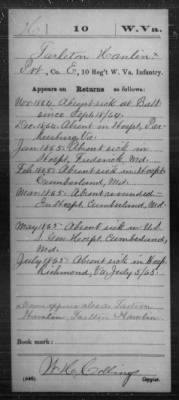 H | 10 | W. Va.
Tarleton Hamlin
Pvt., Co. E, 10 Reg't W. Va. Infantry.
Appears on Returns as follows:
Nov 1864. Absent sick at Balt
since Sept 18/64.
Dec 1864. Absent in Hospt. Par
kersburg Va.
Jan 1865. Absent sick in
Hospt. Frederick, Md.
Feb 1865. Absent sick in Hospt
Cumberland, Md.
Mar 1865. Absent wounded-
In Hospt. Cumberland, Md.
May 1865. Absent sick in U.S.
Gen Hospt. Cumberland,
Md.
July 1865. Absent sick in Hosp
Richmond, Va July 5/65.
Name appears also as
Hamlin, Hamlin
Book mark:
W. H. Collins
(546) Copyist.